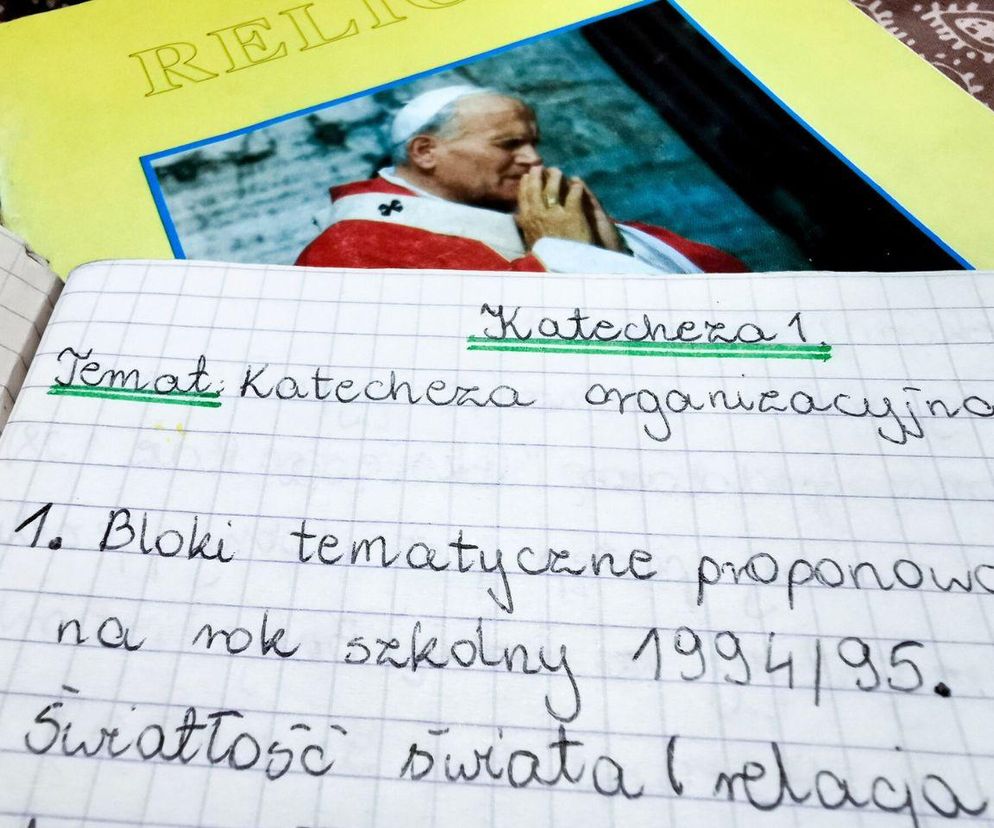 RELIG
Katecheza 1.
Temat: Katecheza organizacyjna
1. Bloki tematyczne proponowa
na rok szkolny 1994/95.
Światłość świata (relacja